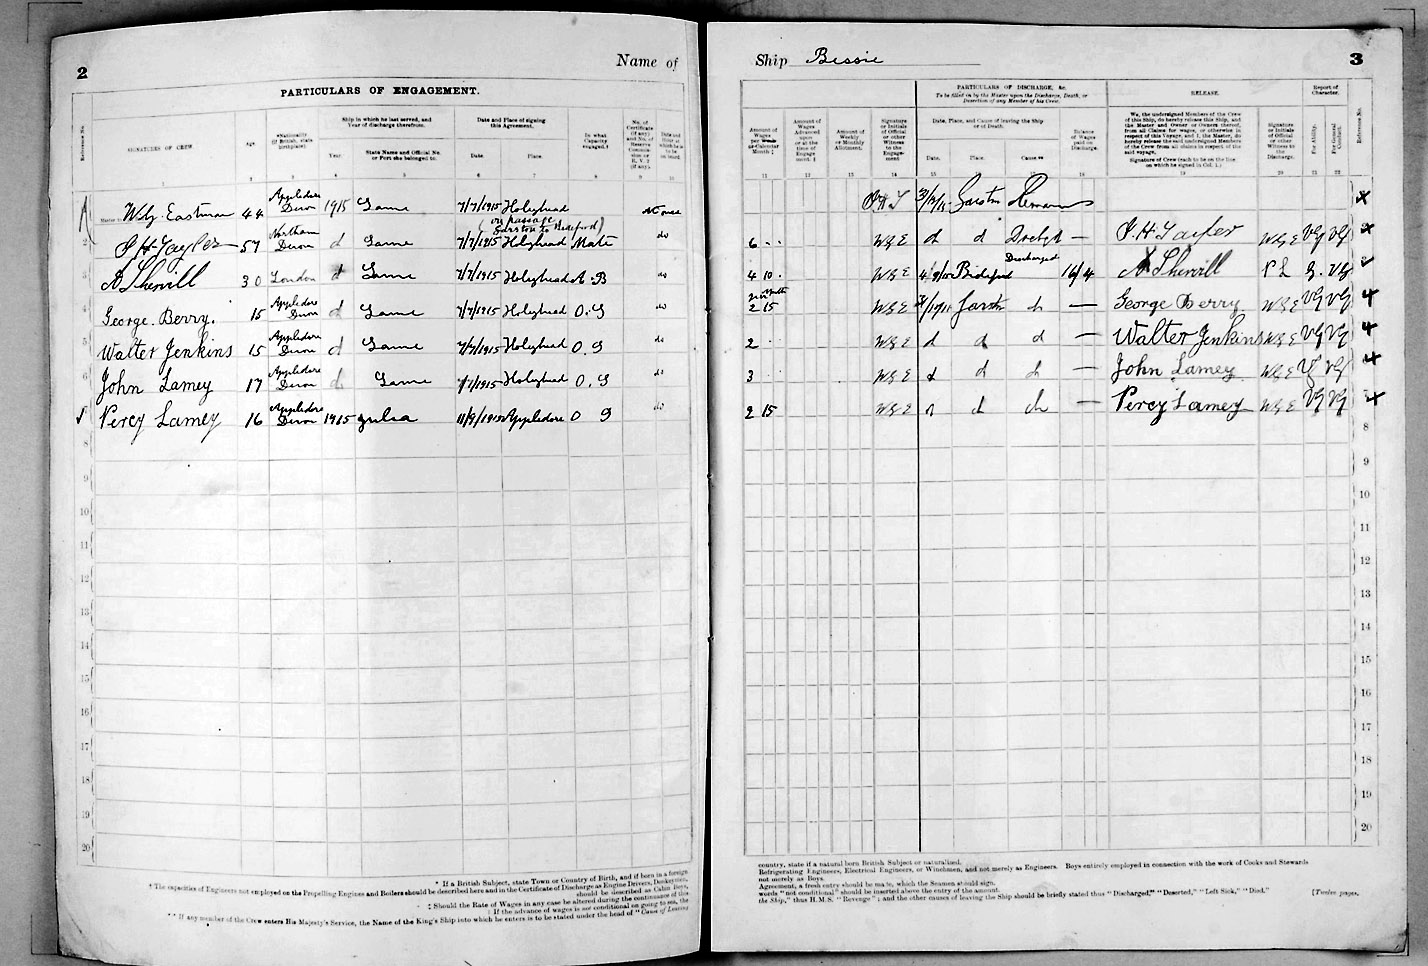 2
Name of
PARTICULARS OF ENGAGEMENT.
Reference No.
SIGNATURES OF CREW.
Age.
*Nationality (if British, state birthplace).
Ship in which he last served, and Year of discharge therefrom.
Year.
State Name and Official No. or Port she belonged to.
Date and Place of signing this Agreement.
Date.
Place.
In what Capacity engaged.†
No. of Certificate (if any)
1 2 3 4 5 6 7 8 9 10
W. G. Eastman 44 Appledore Devon 1915 Same 7/7/1915 Holyhead
on passage
Garston to Bideford
2 J. H. Tayler 57 Northam Devon d Same 7/7/1915 Holyhead Mate do
3 A Shervill 30 London d Same 7/7/1915 Holyhead A B do
4 George Berry. 15 Appledore Devon d Same 7/7/1915 Holyhead O. S do
5 Walter Jenkins 15 Appledore Devon d Same 7/7/1915 Holyhead O. S do
6 John Lamey 17 Appledore Devon d Same 7/7/1915 Holyhead O. S do
Percy Lamey 16 Appledore Devon 1915 Julia 11/9/1915 Appledore O S do
8
9
10
11
12
13
14
15
16
17
18
19
20
* If a British Subject, state Town or Country of Birth, and if born in a foreign
† The capacities of Engineers not employed on the Propelling Engines and Boilers should be described here and in the Certificate of Discharge as Engine Drivers, Donkeymen,
should be described as Cabin Boys,
‡ Should the Rate of Wages in any case be altered during the continuance of this
‖ If the advance of wages is not conditional on going to sea, the
** If any member of the Crew enters His Majesty's Service, the Name of the King's Ship into which he enters is to be stated under the head of "Cause of Leaving
Ship Bessie
3
Amount of Wages per Week or Calendar Month ‡
Amount of Wages Advanced upon or at the time of Engagement. ‖
Amount of Weekly or Monthly Allotment.
Signature or Initials of Official or other Witness to the Engagement
PARTICULARS OF DISCHARGE, &c.
To be filled in by the Master upon the Discharge, Death, or Desertion of any Member of his Crew.
Date, Place, and Cause of leaving the Ship or of Death.
Date. Place. Cause **
Balance of Wages paid on Discharge.
RELEASE.
We, the undersigned Members of the Crew of this Ship, do hereby release this Ship, and the Master and Owner or Owners thereof, from all Claims for wages, or otherwise in respect of this Voyage, and I, the Master, do hereby release the said undersigned Members of the Crew from all claims in respect of the said voyage.
Signature of Crew (each to be on the line on which he signed in Col. 1.)
Signature or Initials of Official or other Witness to the Discharge.
Report of Character.
For Ability.
For General Conduct.
Reference No.
11 12 13 14 15 16 17 18 19 20 21 22
J H T 31/12/15 Garston Remains x
6 W G E d d d — J. H. Tayler W G E VG VG x
Discharged
4 10 W G E 4/9/15 Bideford 16/4 A Shervill P L G. VG
2 15 W G E Garston d — George Berry W G E VG VG 4
2 W G E d d d — Walter Jenkins W G E VG VG 4
3 W G E d d d — John Lamey W G E VG VG 4
2 15 W G E d d d — Percy Lamey W G E VG VG x
8
9
10
11
12
13
14
15
16
17
18
19
20
country, state if a natural born British Subject or naturalised.
Refrigerating Engineers, Electrical Engineers, or Winchmen, and not merely as Engineers. Boys entirely employed in connection with the work of Cooks and Stewards
not merely as Boys.
Agreement, a fresh entry should be made, which the Seamen should sign.
words "not conditional" should be inserted above the entry of the amount.
the Ship," thus H.M.S. "Revenge"; and the other causes of leaving the Ship should be briefly stated thus "Discharged," "Deserted," "Left Sick," "Died."
[Twelve pages.